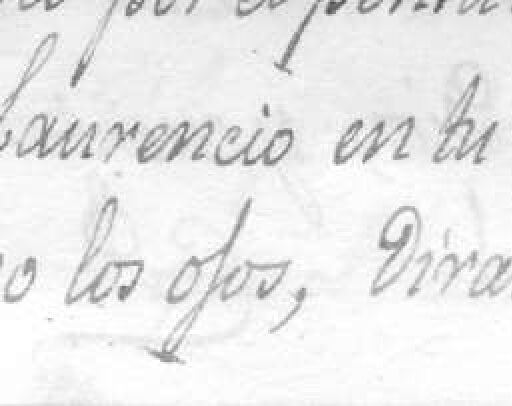 por el
Laurencio en tu
los ojos, Dira